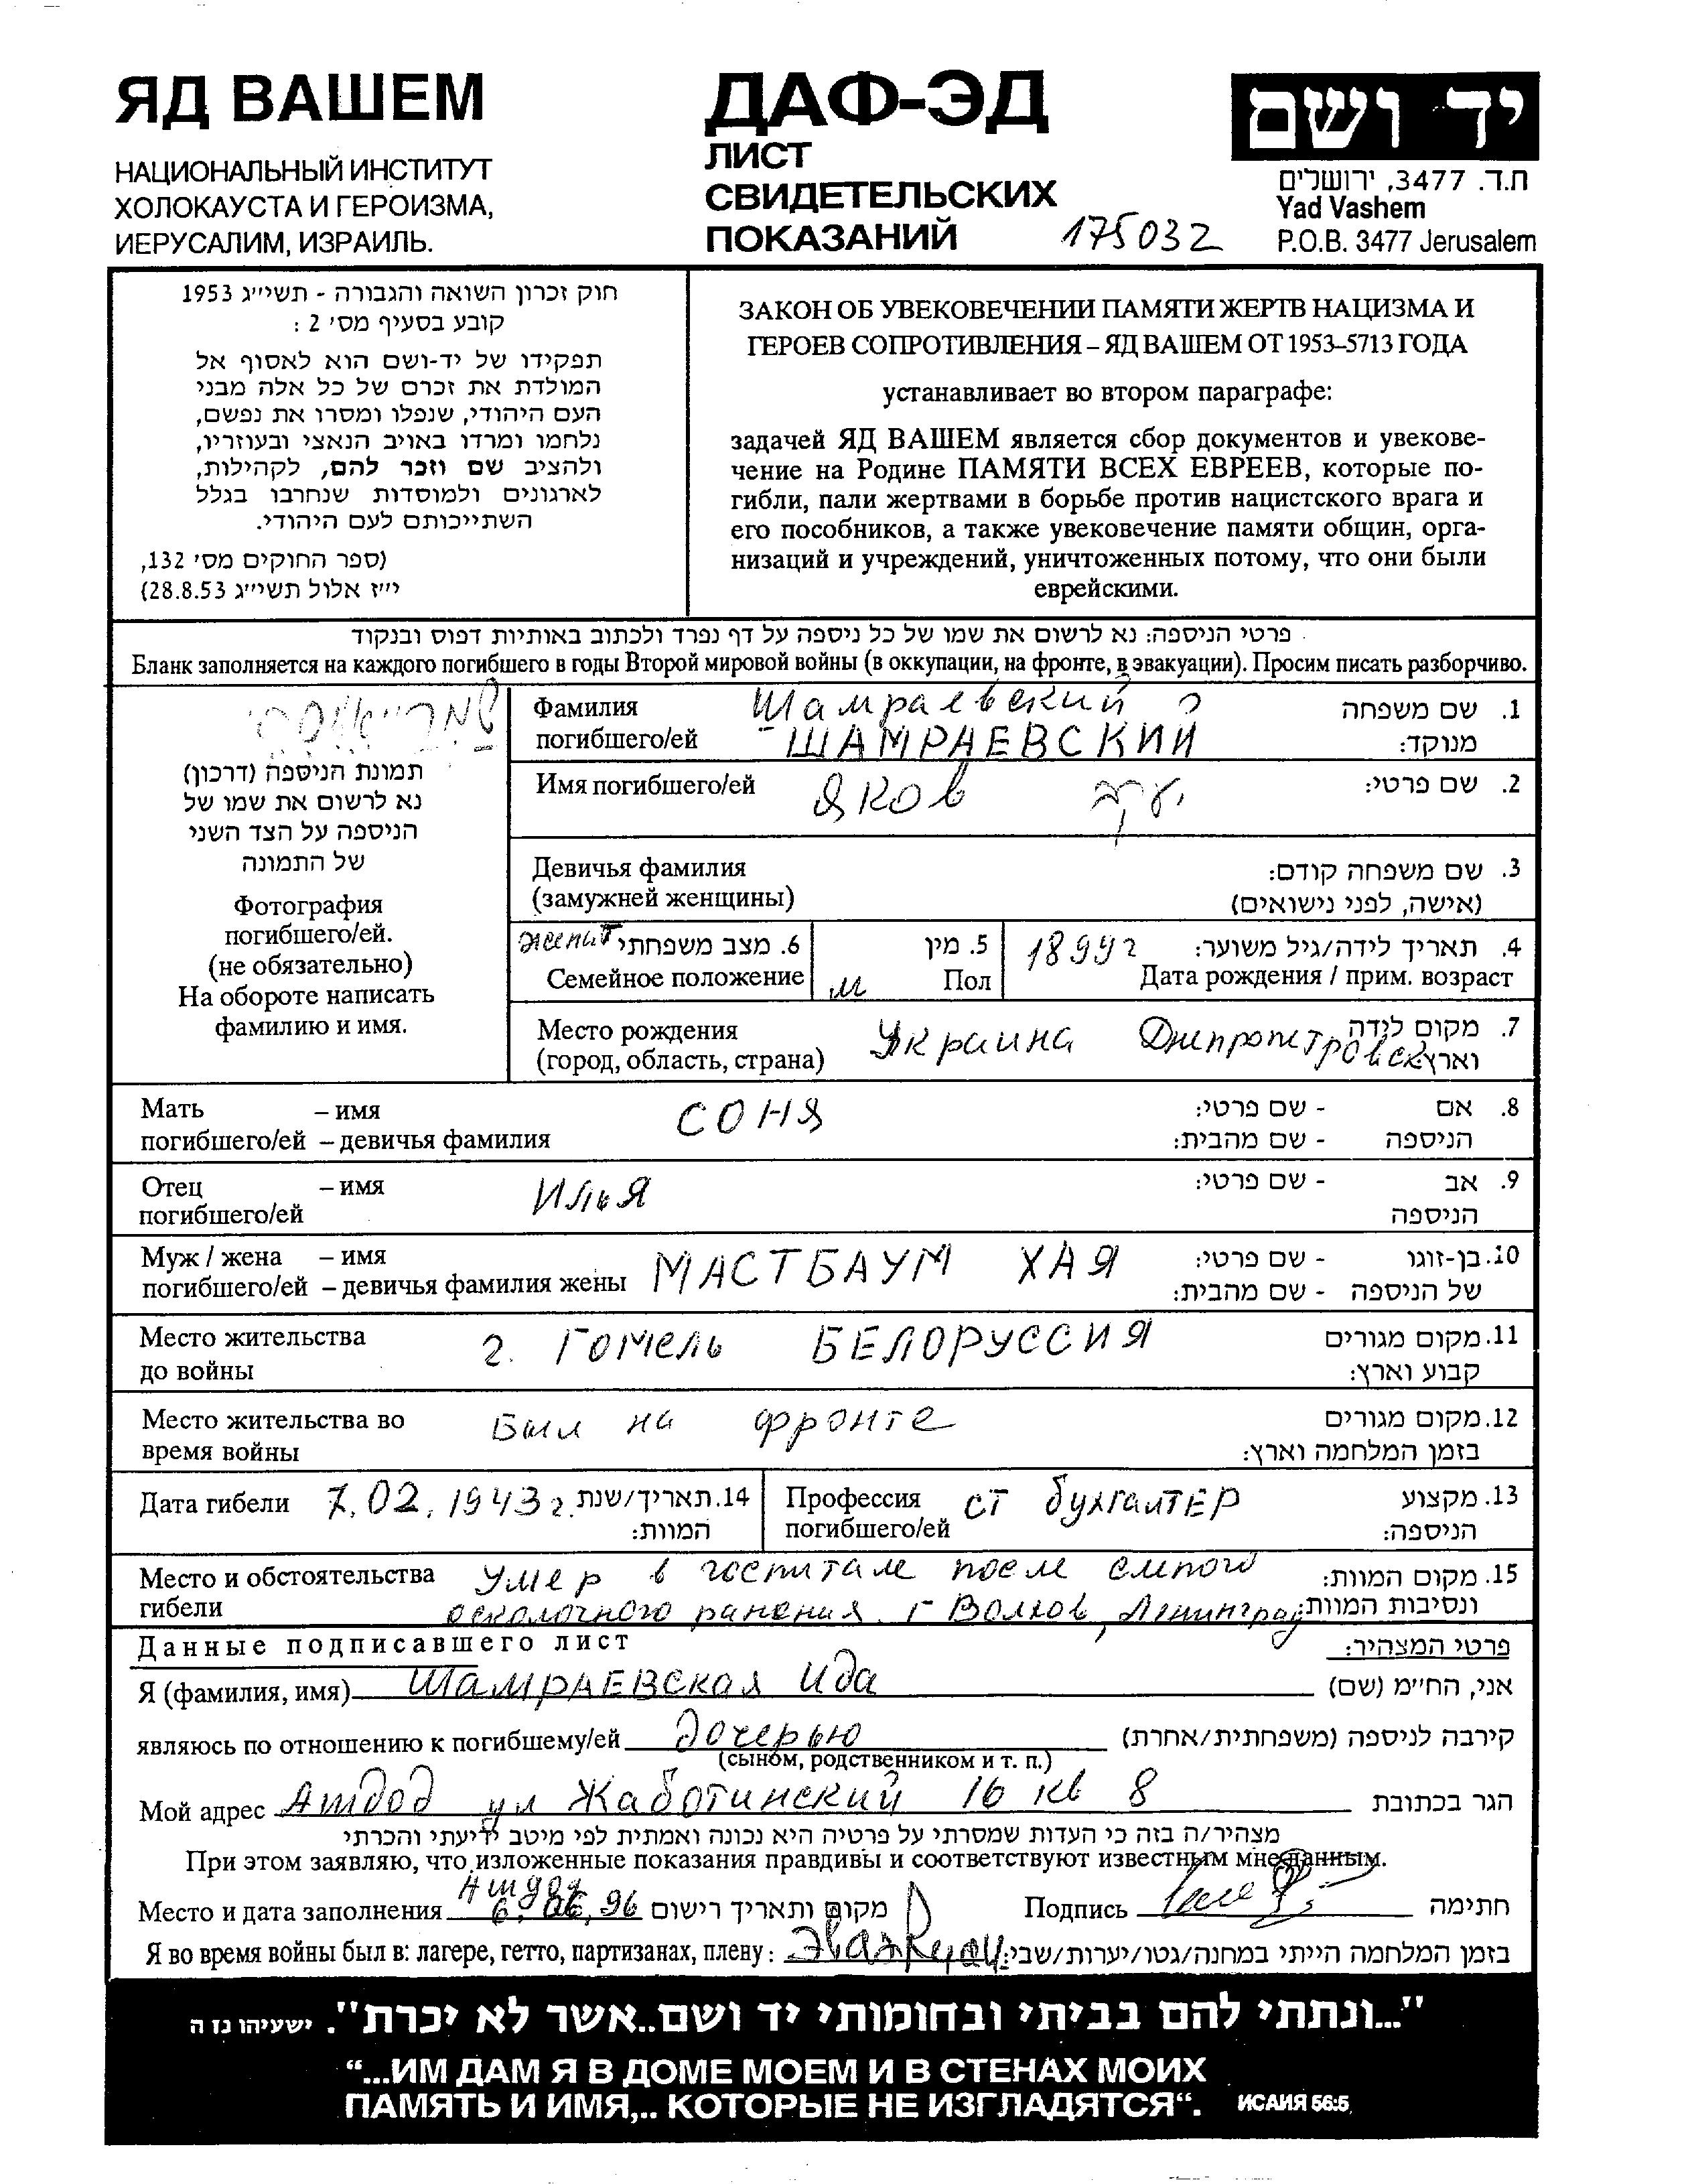 ЯД ВАШЕМ
НАЦИОНАЛЬНЫЙ ИНСТИТУТ
ХОЛОКАУСТА И ГЕРОИЗМА,
ИЕРУСАЛИМ, ИЗРАИЛЬ.
ДАФ-ЭД
ЛИСТ
СВИДЕТЕЛЬСКИХ
ПОКАЗАНИЙ 175032
יד ושם
ת.ד. 3477, ירושלים
Yad Vashem
P.O.B. 3477 Jerusalem
חוק זכרון השואה והגבורה - תשי״ג 1953
קובע בסעיף מס׳ 2 :
תפקידו של יד-ושם הוא לאסוף אל
המולדת את זכרם של כל אלה מבני
העם היהודי, שנפלו ומסרו את נפשם,
נלחמו ומרדו באויב הנאצי ובעוזריו,
ולהציב שם וזכר להם, לקהילות,
לארגונים ולמוסדות שנחרבו בגלל
השתייכותם לעם היהודי.
(ספר החוקים מס׳ 132,
י״ז אלול תשי״ג 28.8.53)
ЗАКОН ОБ УВЕКОВЕЧЕНИИ ПАМЯТИ ЖЕРТВ НАЦИЗМА И
ГЕРОЕВ СОПРОТИВЛЕНИЯ – ЯД ВАШЕМ ОТ 1953–5713 ГОДА
устанавливает во втором параграфе:
задачей ЯД ВАШЕМ является сбор документов и увекове-
чение на Родине ПАМЯТИ ВСЕХ ЕВРЕЕВ, которые по-
гибли, пали жертвами в борьбе против нацистского врага и
его пособников, а также увековечение памяти общин, орга-
низаций и учреждений, уничтоженных потому, что они были
еврейскими.
פרטי הניספה: נא לרשום את שמו של כל ניספה על דף נפרד ולכתוב באותיות דפוס ובנקוד
Бланк заполняется на каждого погибшего в годы Второй мировой войны (в оккупации, на фронте, в эвакуации). Просим писать разборчиво.
תמונת הניספה (דרכון)
נא לרשום את שמו של
הניספה על הצד השני
של התמונה
Фотография
погибшего/ей.
(не обязательно)
На обороте написать
фамилию и имя.
Фамилия Шамраевский 1. שם משפחה
погибшего/ей ШАМРАЕВСКИЙ מנוקד:
Имя погибшего/ей Яков יעקב 2. שם פרטי:
Девичья фамилия 3. שם משפחה קודם:
(замужней женщины) (אישה, לפני נישואים)
женат 6. מצב משפחתי 5. מין 1899г 4. תאריך לידה/גיל משוער:
Семейное положение м Пол Дата рождения / прим. возраст
Место рождения Украина Днепропетровск 7. מקום לידה
(город, область, страна) וארץ
Мать – имя СОНЯ 8. אם - שם פרטי:
погибшего/ей – девичья фамилия הניספה - שם מהבית:
Отец – имя ИЛЬЯ 9. אב - שם פרטי:
погибшего/ей הניספה
Муж / жена – имя МАСТБАУМ ХАЯ 10. בן-זוגו - שם פרטי:
погибшего/ей – девичья фамилия жены של הניספה - שם מהבית:
Место жительства г. Гомель БЕЛОРУССИЯ 11. מקום מגורים
до войны קבוע וארץ:
Место жительства во Был на фронте 12. מקום מגורים
время войны בזמן המלחמה וארץ:
Дата гибели 7.02.1943г. 14. תאריך/שנת המוות:
Профессия ст бухгалтер 13. מקצוע
погибшего/ей הניספה:
Место и обстоятельства Умер в госпитале после слепого 15. מקום המוות:
гибели осколочного ранения г Волхов, Ленинград ונסיבות המוות:
Данные подписавшего лист פרטי המצהיר:
Я (фамилия, имя) Шамраевская Ида אני, הח״מ (שם)
являюсь по отношению к погибшему/ей дочерью קירבה לניספה (משפחתית/אחרת)
(сыном, родственником и т. п.)
Мой адрес Ашдод ул Жаботинский 16 кв 8 הגר בכתובת
מצהיר/ה בזה כי העדות שמסרתי על פרטיה היא נכונה ואמתית לפי מיטב ידיעתי והכרתי
При этом заявляю, что изложенные показания правдивы и соответствуют известным мне данным.
Ашдод
Место и дата заполнения 6.06.96 מקום ותאריך רישום Подпись חתימה
Я во время войны был в: лагере, гетто, партизанах, плену: Эвакуац בזמן המלחמה הייתי במחנה/גטו/יערות/שבי:
"...ונתתי להם בביתי ובחומותי יד ושם..אשר לא יכרת". ישעיהו נז ה
“...ИМ ДАМ Я В ДОМЕ МОЕМ И В СТЕНАХ МОИХ
ПАМЯТЬ И ИМЯ,.. КОТОРЫЕ НЕ ИЗГЛАДЯТСЯ“. ИСАИЯ 56:5,